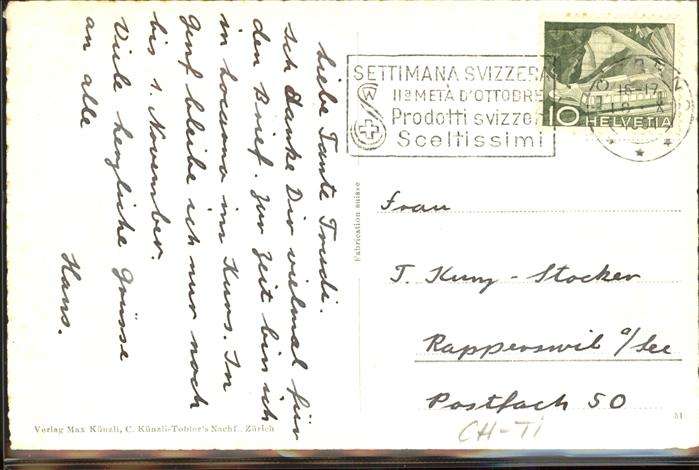 Liebe Tante Trudi.
Ich danke Dir vielmal für
den Brief. Zur Zeit bin ich
in Locarno im Kurs. In
Genf bleibe ich nur noch
bis 1. November.
Viele herzliche Grüsse
an alle
Hans.
SETTIMANA SVIZZERA
IIª METÀ D'OTTOBRE
Prodotti svizzeri
Sceltissimi
10 HELVETIA
Fabrication suisse
Frau
T. Kunz-Stocker
Rapperswil a/See
Postfach 50
CH-TI
Verlag Max Künzli, C. Künzli-Tobler's Nachf., Zürich